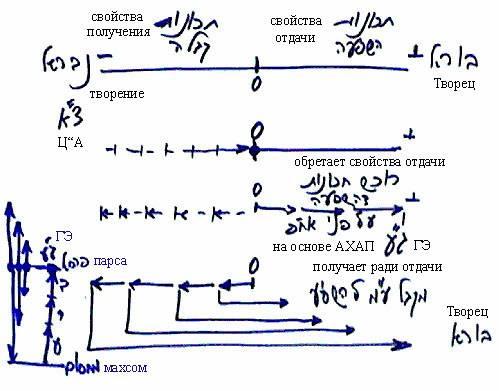 свойства
получения
תכונות
קבלה
свойства
отдачи
תכונות
השפעה
נברא
−
+
בורא
творение
0
Творец
צ"א
Ц“А
0
+
обретает свойства отдачи
רוכש תכונות
דהשפעה
על פני אח"פ
0
+
на основе АХАП
ג"ע
ГЭ
ГЭ
ג"ע
парса
פרסה
0
получает ради отдачи
מקבל ע"מ להשפיע
Творец
בורא
מחסום
махсом